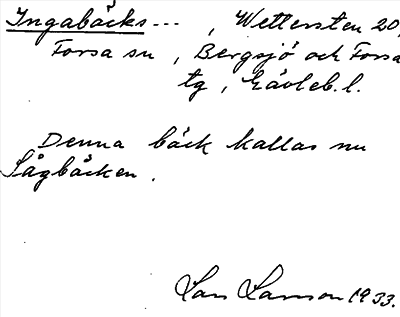 Ingabäcks--- , Wettersten 20,
Forsa sn , Bergsjö och Forsa
tg , Gävleb. l.
Denna bäck kallas nu
Sågbäcken .
Lars Larsson 1933.